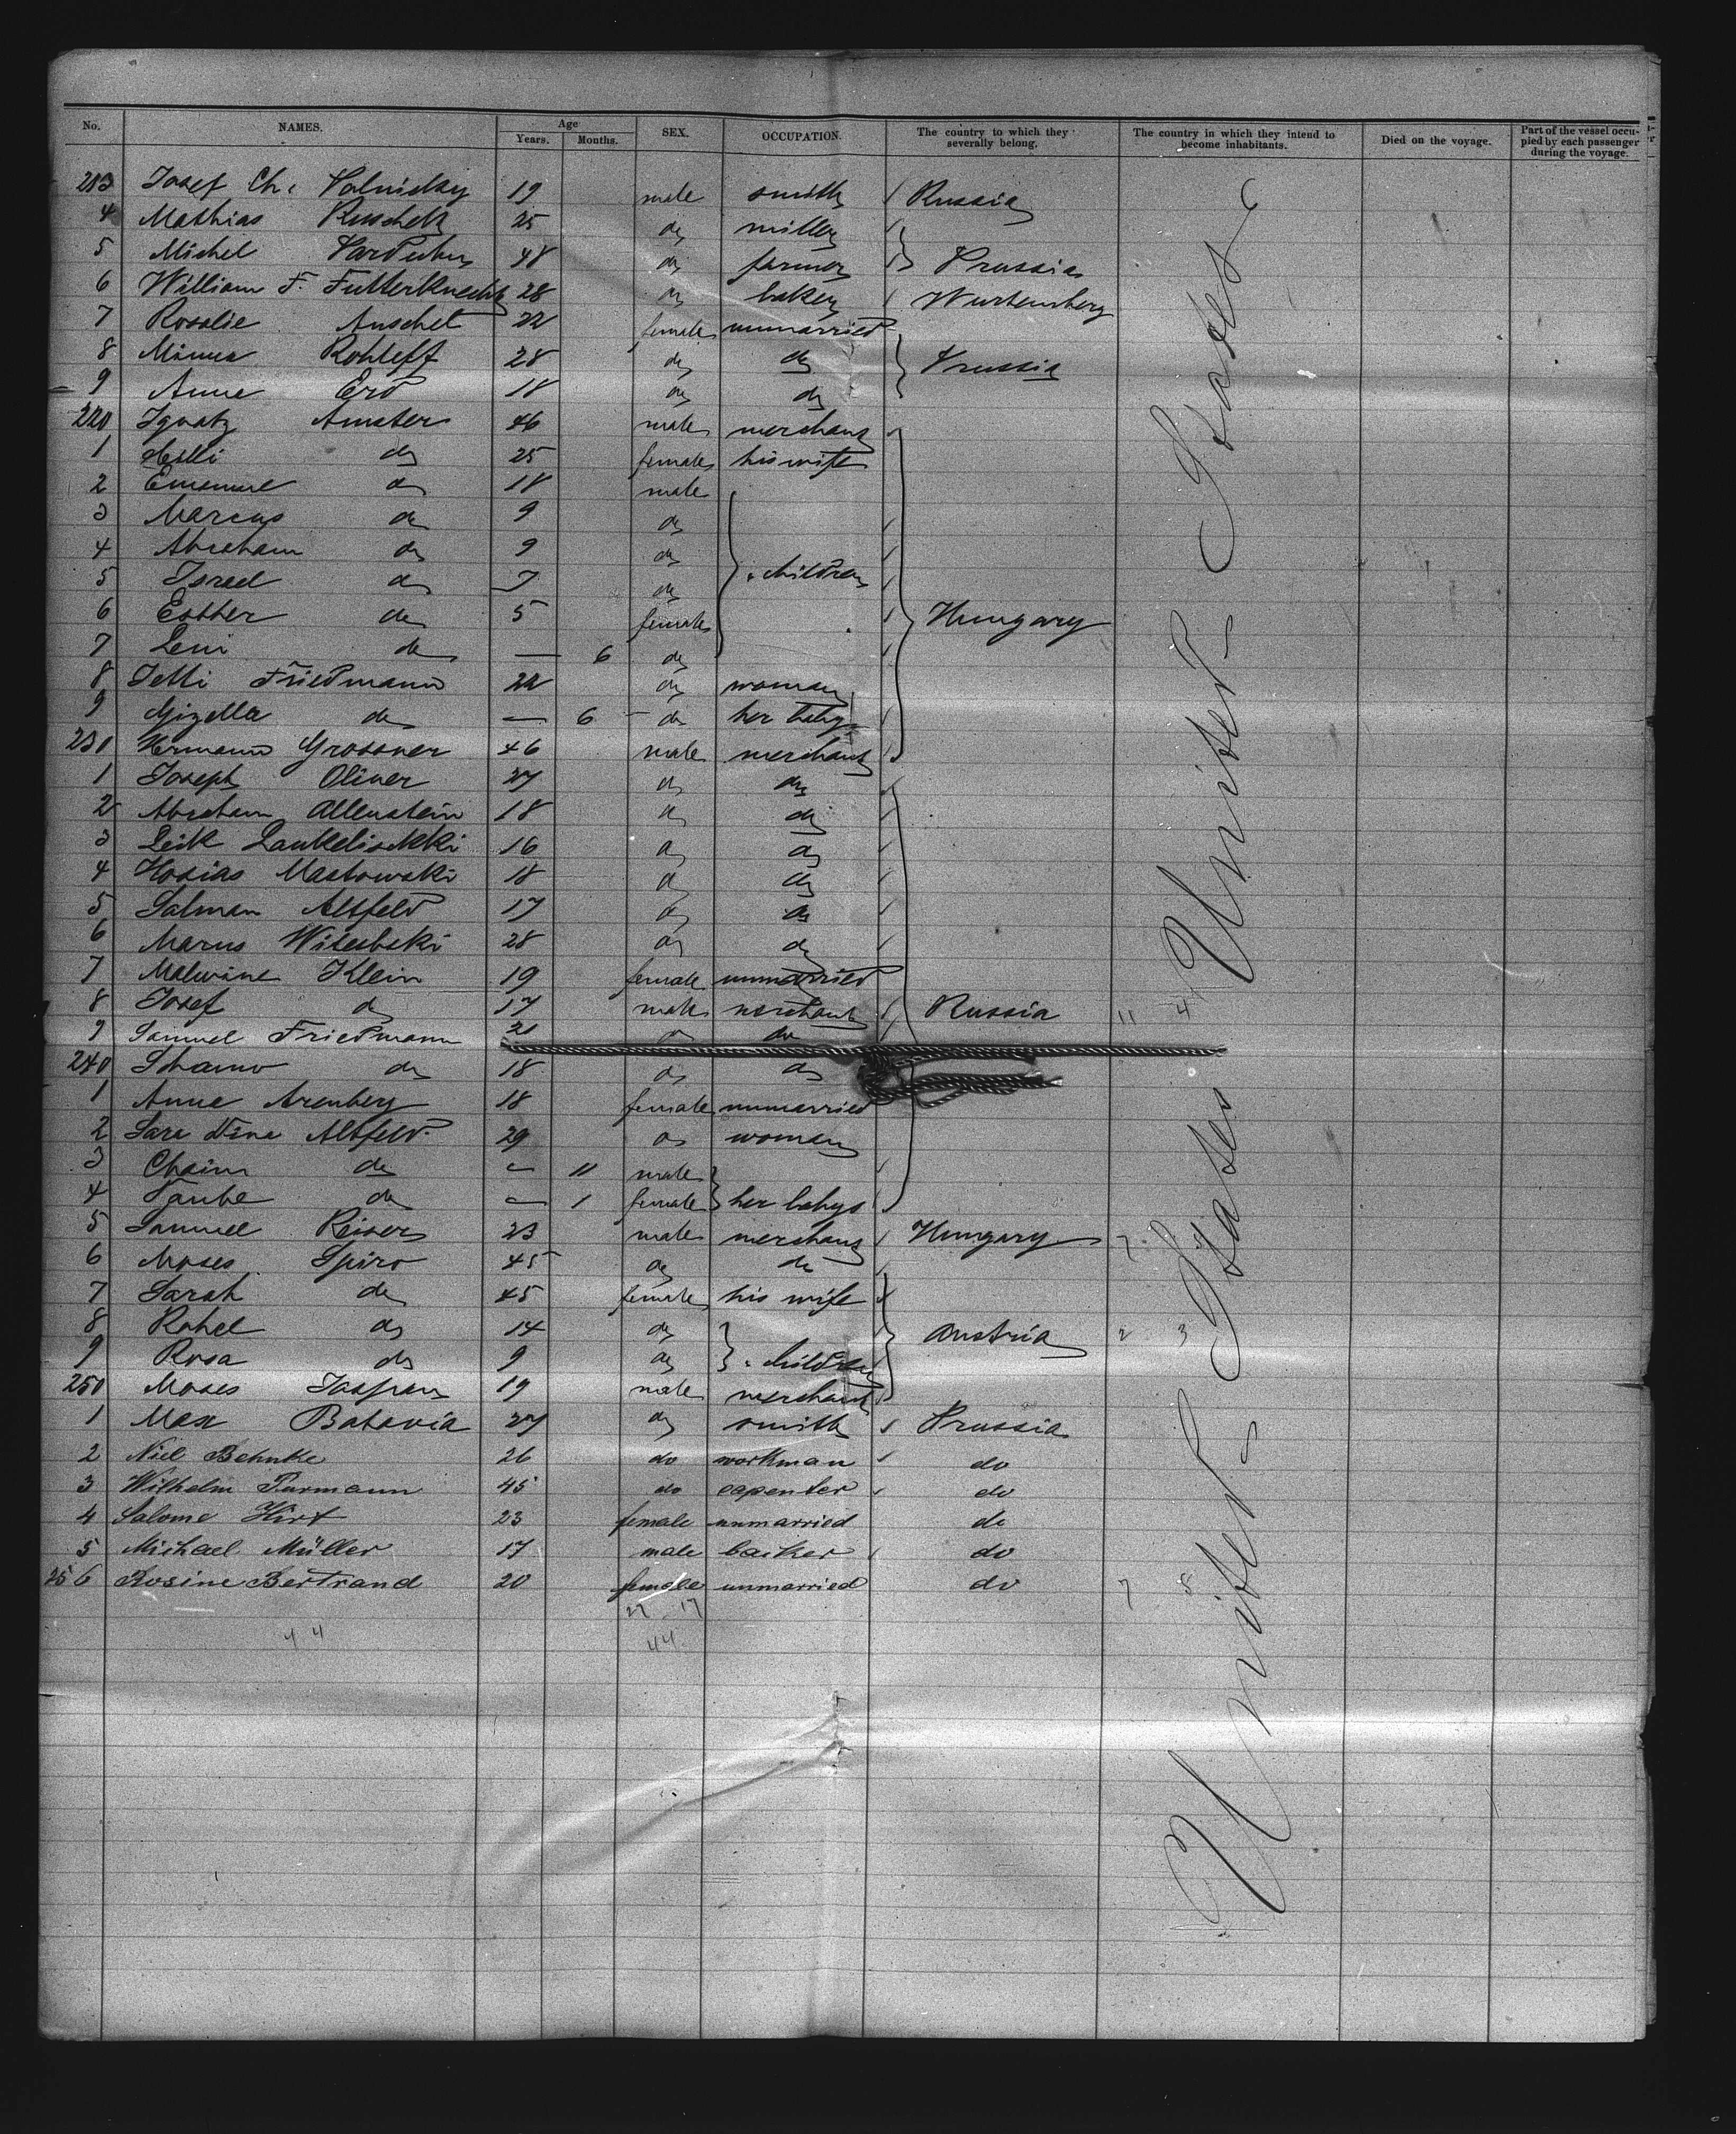 No. NAMES. Age Years. Months. SEX. OCCUPATION. The country to which they severally belong. The country in which they intend to become inhabitants. Died on the voyage. Part of the vessel occupied by each passenger during the voyage.
213 Josef Ch. 19 male smith Russia
4 Mathias Ruschek 25 do miller
5 Michel 48 do farmer Prussia
6 William F. Futterknecht 28 do baker Wurtemberg
7 Rosalie Anschel 22 female unmarried
8 Minna Rohleff 28 do do Prussia
9 Anne Erd 18 do do
220 Ignatz Amster 46 male merchant
1 do 25 female his wife
2 Emanuel do 18 male
3 Marcus do 9 do
4 Abraham do 9 do children
5 Israel do 7 do
6 Esther do 5 female Hungary
7 Leni do — 6 do
8 Jetti Friedmann 22 do woman
9 Gizella do — 6 do her baby
230 Hermann Grossner 46 male merchant
1 Joseph Oliner 27 do do
2 Abraham Allenstein 18 do do
3 Leik 16 do do
4 Hosias Mastowski 18 do do
5 Salman Altfeld 17 do do
6 Marus Witebski 28 do do
7 Malwine Klein 19 female unmarried
8 Josef do 17 male merchant Russia 11 4
9 Samuel Friedmann do do
240 do 18 do do
1 Anna Arenberg 18 female unmarried
2 Sara Altfeld 29 do woman
3 Chaim do — 11 male
4 Taube do — 1 female her babys
5 Samuel Reiser 23 male merchant Hungary 7
6 Moses Spiro 45 do do
7 Sarah do 45 female his wife
8 Rahel do 14 do Austria 2 3
9 Rosa do 9 do children
250 Moses 19 male merchant
1 Max Batavia 27 do smith Prussia
2 Niel Behnke 26 do workman do
3 Wilhelm Purmann 45 do capenter do
4 Salome Hirt 23 female unmarried do
5 Michael Müller 17 male backer do
256 Rosine Bertrand 20 female unmarried do 7 8
27 17
44 44
United States
United States